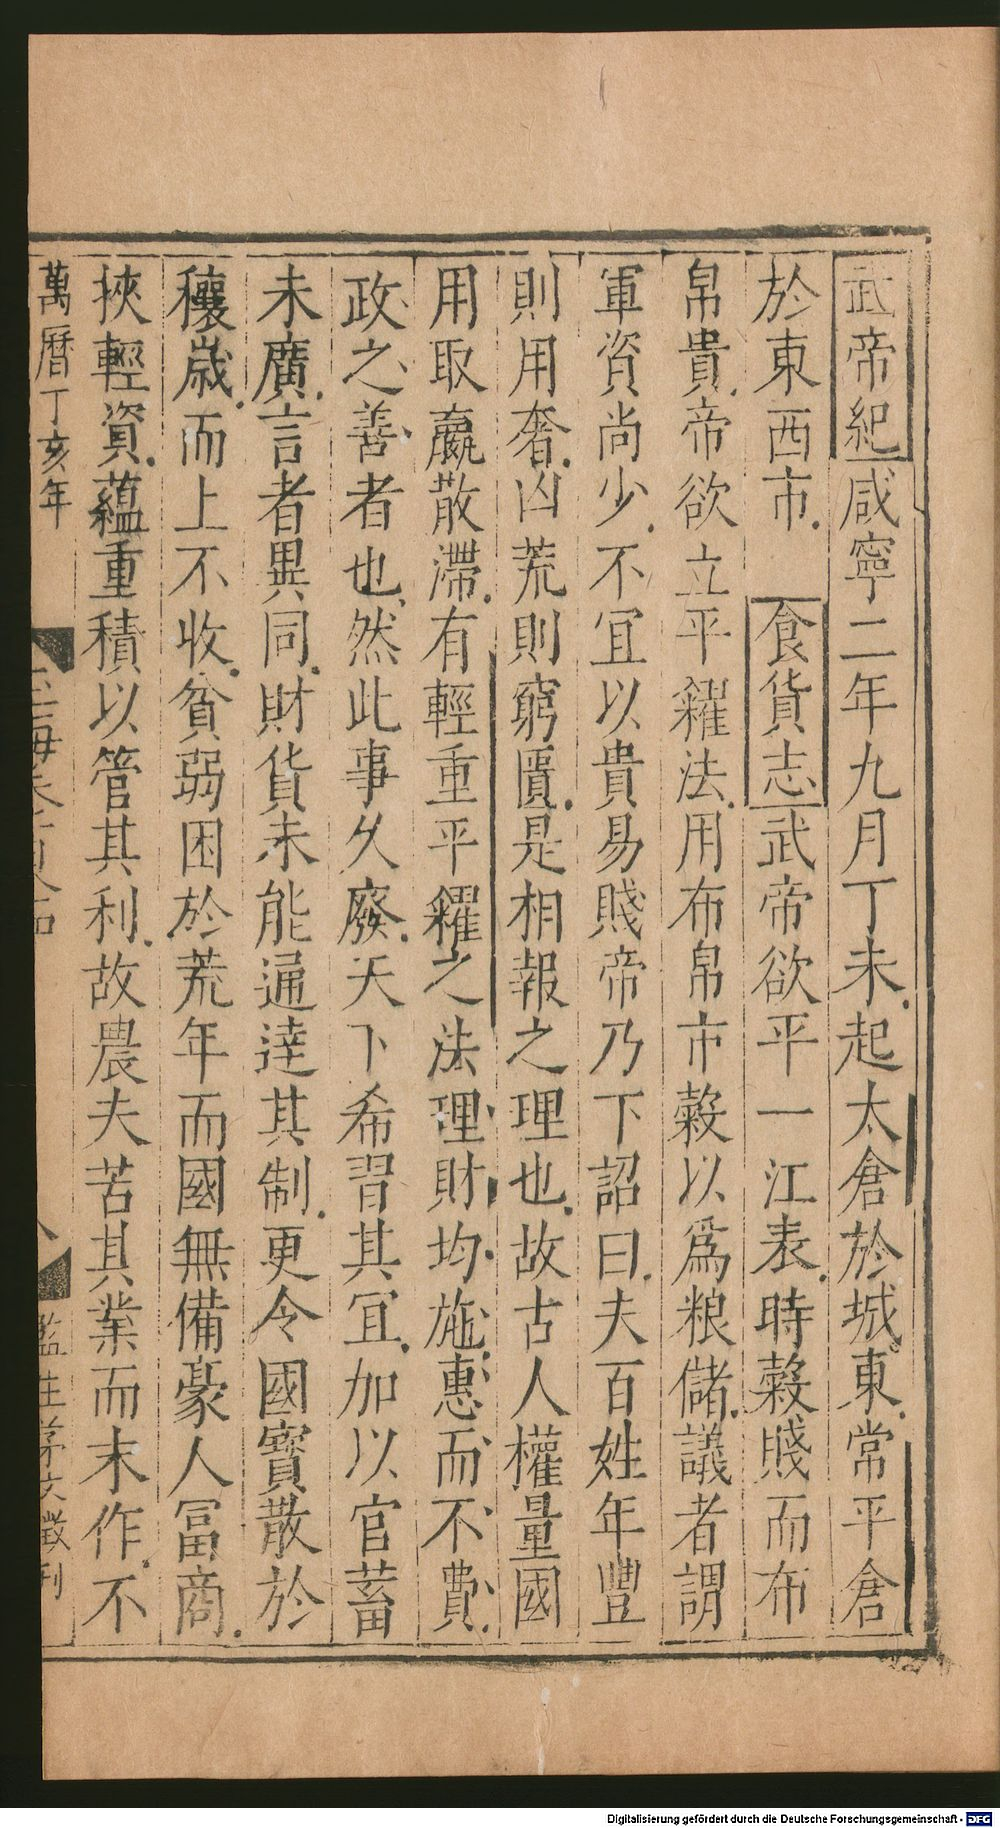 武帝紀咸寧二年九月丁未起太倉於城東常平倉
於東西市　食貨志武帝欲平一江表時穀賤而布
帛貴帝欲立平糴法用布帛市穀以爲粮儲議者謂
軍資尚少不冝以貴易賤帝乃下詔曰夫百姓年豐
則用奢凶荒則窮匱是相報之理也故古人權量國
用取羸散滯有輕重平糴之法理財均施惠而不費
政之善者也然此事久廢天下希習其冝加以官蓄
未廣言者異同財貨未能通逹其制更令國寳散於
穰歲而上不收貧弱困於荒年而國無備豪人冨商
挾輕資蘊重積以管其利故農夫苦其業而末作不
萬曆丁亥年
監生茅文徵刊
Digitalisierung gefördert durch die Deutsche Forschungsgemeinschaft - DFG